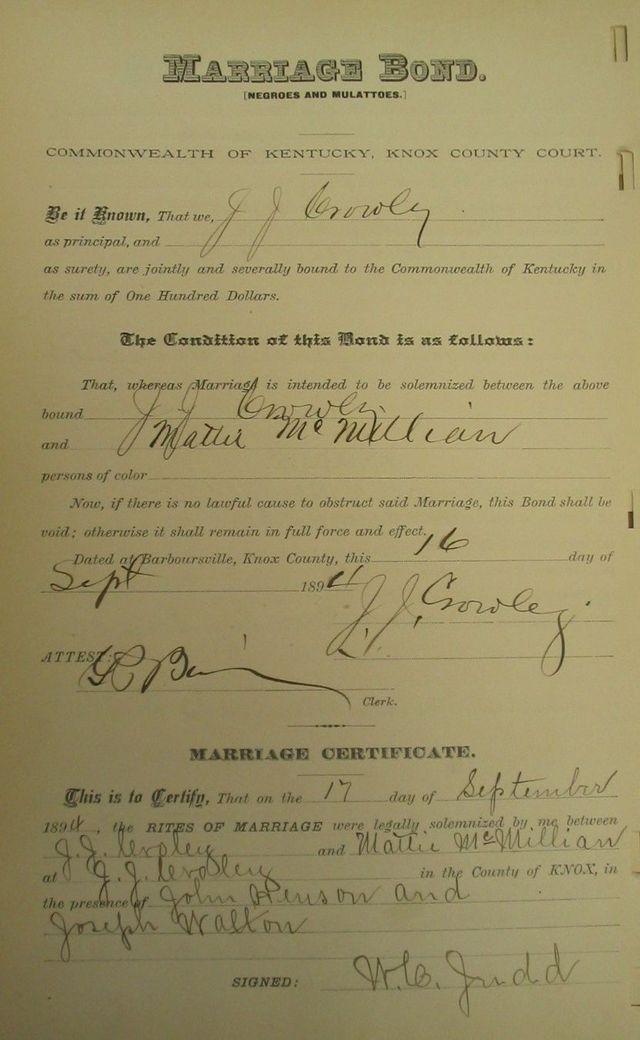 MARRIAGE BOND.
[NEGROES AND MULATTOES.]
COMMONWEALTH OF KENTUCKY, KNOX COUNTY COURT.
Be it Known, That we, J J Crowley
as principal, and
as surety, are jointly and severally bound to the Commonwealth of Kentucky in
the sum of One Hundred Dollars.
The Condition of this Bond is as follows:
That, whereas Marriage is intended to be solemnized between the above
bound J. J. Crowley
and Mattie McMillian
persons of color
Now, if there is no lawful cause to obstruct said Marriage, this Bond shall be
void; otherwise it shall remain in full force and effect.
Dated at Barboursville, Knox County, this 16 day of
Sept 1894
J. J. Crowley
ATTEST:
Clerk.
MARRIAGE CERTIFICATE.
This is to Certify, That on the 17 day of September
1894, the RITES OF MARRIAGE were legally solemnized by me between
J. J. and Mattie McMillian
at J. J. in the County of KNOX, in
the presence of John Henson and
Joseph Walton
SIGNED: W. C. Judd